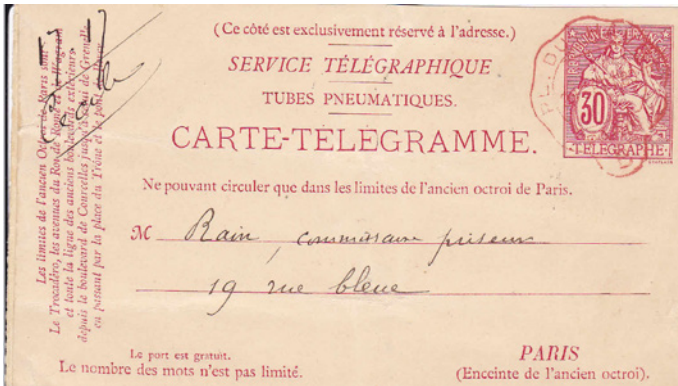 (Ce côté est exclusivement réservé à l'adresse.)
SERVICE TÉLÉGRAPHIQUE
TUBES PNEUMATIQUES.
CARTE-TÉLÉGRAMME.
Ne pouvant circuler que dans les limites de l'ancien octroi de Paris.
M Rain, commissaire priseur
19 rue bleue
Le port est gratuit.
Le nombre des mots n'est pas limité.
PARIS
(Enceinte de l'ancien octroi).
30
TÉLÉGRAPHE
Les limites de l'ancien Octroi de Paris sont :
Le Trocadéro, les avenues du Roi de Rome et de Wagram
et toute la ligne des anciens boulevards extérieurs
depuis le boulevard de Courcelles jusqu'à celui de Grenelle
en passant par la place du Trône et le pont de Bercy
17 17